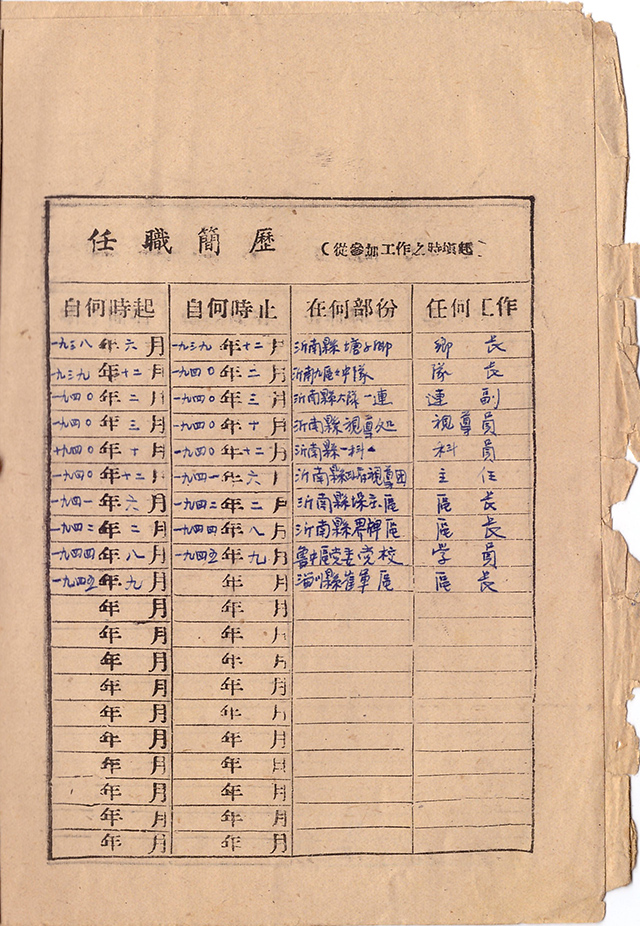 任職簡歷 (從參加工作之時填起)
自何時起 自何時止 在何部份 任何工作
一九三八年六月 一九三九年十二月 沂南縣塘子鄉 鄉長
一九三九年十二月 一九四〇年二月 沂南九區中隊 隊長
一九四〇年二月 一九四〇年三月 沂南縣大隊一連 連副
一九四〇年三月 一九四〇年十月 沂南縣視導处 視導員
一九四〇年十月 一九四〇年十二月 沂南縣一科 科員
一九四〇年十二月 一九四一年六月 沂南縣視導团 主任
一九四一年六月 一九四二年二月 沂南縣庄區 區長
一九四二年二月 一九四四年八月 沂南縣界碑區 區長
一九四四年八月 一九四五年九月 魯中區党委党校 学員
一九四五年九月 年月 淄川縣崔軍區 區長
年月 年月
年月 年月
年月 年月
年月 年月
年月 年月
年月 年月
年月 年月
年月 年月
年月 年月
年月 年月